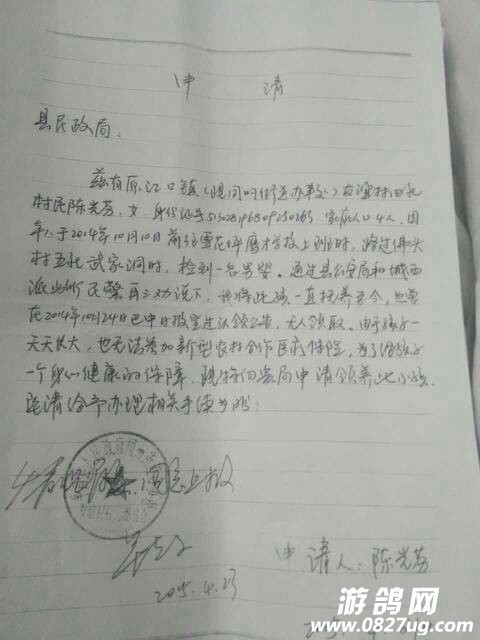 申 请
县民政局:
兹有原江口镇(现同州街道办事处)
村民陈光芬,女,身份证号 家庭人口4人,因
本人于2014年10月10日前往雪花坪磨子学校上班时,路过佛头
村五社武家洞时,捡到一名男婴。通过县公安局和城西
派出所民警再三劝说下,我将此孩一直抚养至今,也曾
在2014年10月24日巴中日报登过认领公告,无人领取。由于孩子一
天天长大,也无法参加新型农村合作医疗保险,为了给孩子
一个身心健康的保障,现特向贵局申请领养此小孩,
恳请给予办理相关手续为盼!
同意上报
2015.4.23
申请人:陈光芬
游鸽网
www.0827ug.com